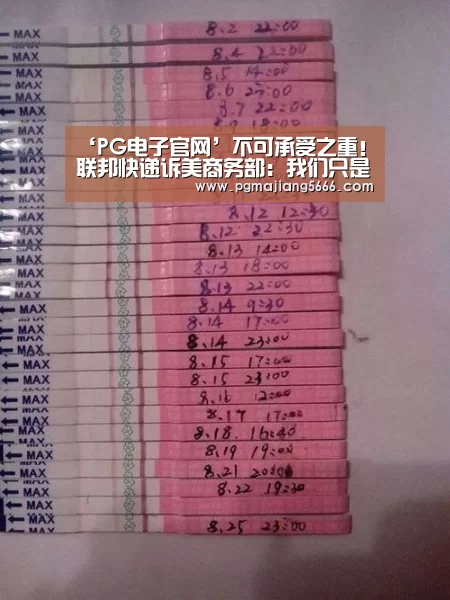 MAX 8.2 22:00
MAX 8.4 22:00
MAX 8.5 14:00
MAX 8.6 22:00
MAX 8.7 22:00
MAX 18:00
‘PG电子官网’不可承受之重！
联邦快递诉美商务部：我们只是
www.pgmajiang5666.com
MAX 8.12 12:30
MAX 8.12 22:30
MAX 8.13 14:00
MAX 8.13 18:00
MAX 8.13 22:00
MAX 8.14 9:30
MAX 8.14 17:00
MAX 8.14 23:00
MAX 8.15 17:00
MAX 8.15 23:00
MAX 8.16 12:00
MAX 8.17 17:00
MAX 8.18. 16:30
MAX 8.19 19:00
MAX 8.21 20:00
MAX 8.22 19:30
MAX
MAX 8.25 23:00